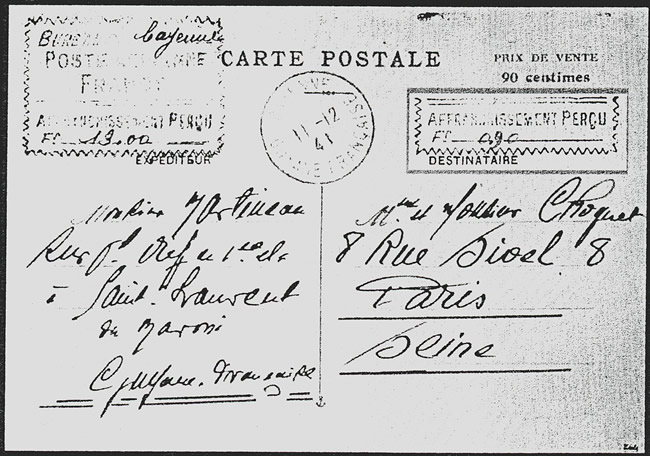 BUREAU Cayenne
POSTE AÉRIENNE
FRANCE
AFFRANCHISSEMENT PERÇU
Fc 13.00
EXPÉDITEUR
CARTE POSTALE
PRIX DE VENTE
90 centimes
11-12
41
AFFRANCHISSEMENT PERÇU
Fc 0.90
DESTINATAIRE
Monsieur Martineau
à Saint-Laurent
du Maroni
Guyane Française
Mme et Monsieur Choquet
8 Rue Diosel 8
Paris
Seine